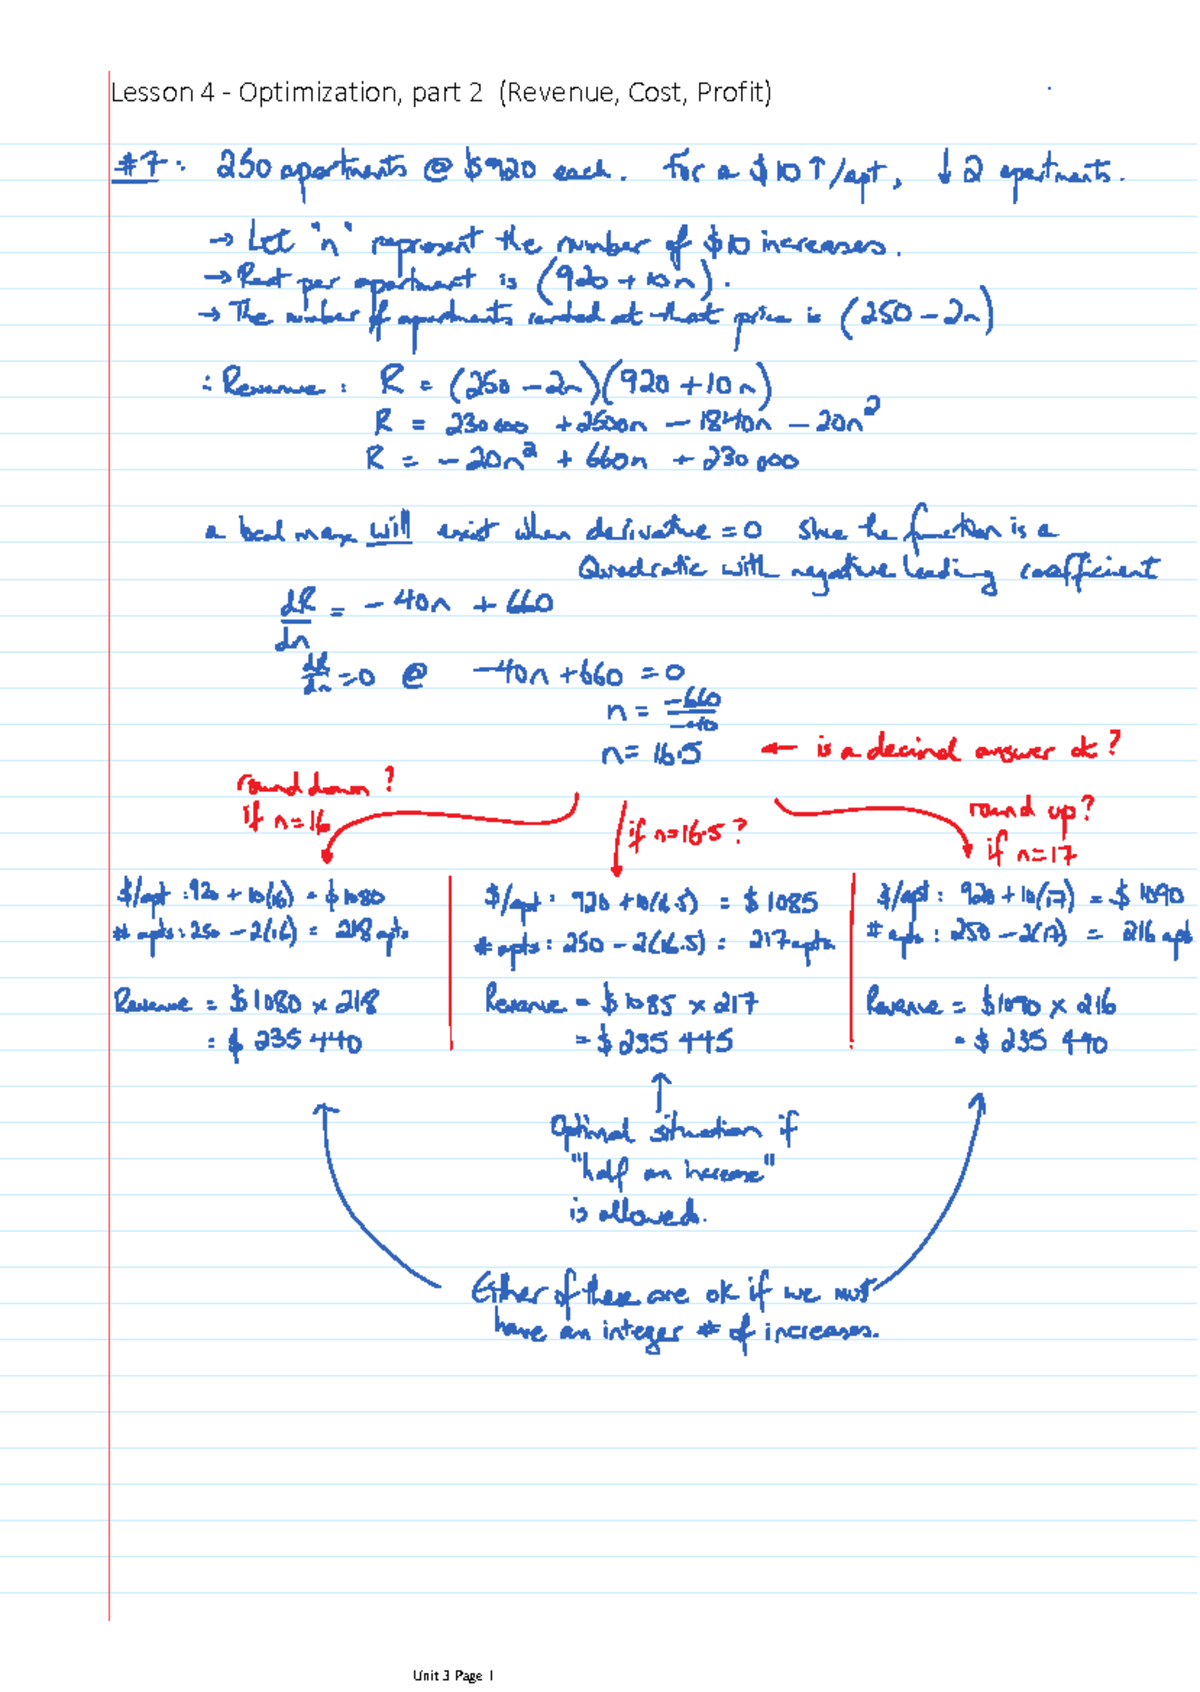 Lesson 4 - Optimization, part 2 (Revenue, Cost, Profit)
#7: 250 apartments @ $920 each. For a $10↑/apt, ↓2 apartments.
→ Let "n" represent the number of $10 increases.
→ Rent per apartment is (920 + 10n).
→ The number of apartments rented at that price is (250 - 2n)
∴ Revenue: R = (250 - 2n)(920 + 10n)
R = 230 000 + 2500n - 1840n - 20n²
R = - 20n² + 660n + 230 000
a local max will exist when derivative = 0 since the function is a
Quadratic with negative leading coefficient
dR/dn = - 40n + 660
dR/dn = 0 @ -40n + 660 = 0
n = -660/-40
n = 16.5 ← is a decimal answer ok?
round down?
if n=16
if n=16.5?
round up?
if n=17
$/apt: 920 + 10(16) = $1080
# apts: 250 - 2(16) = 218 apts
Revenue = $1080 x 218
= $ 235 440
$/apt: 920 + 10(16.5) = $1085
# apts: 250 - 2(16.5) = 217 apts
Revenue = $1085 x 217
= $ 235 445
$/apt: 920 + 10(17) = $1090
# apts: 250 - 2(17) = 216 apt
Revenue = $1090 x 216
= $ 235 440
Optimal situation if
"half an increase"
is allowed.
Either of these are ok if we must
have an integer # of increases.
Unit 3 Page 1